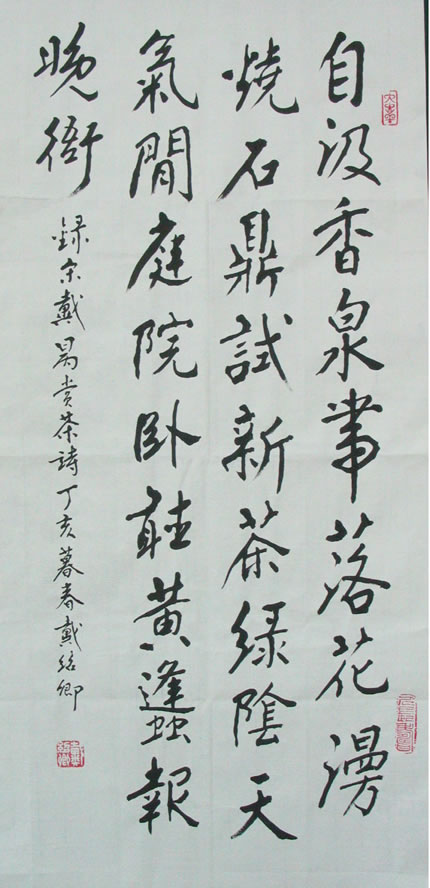 自汲香泉帶落花漫
燒石鼎試新茶綠陰天
氣閒庭院卧聽黃蠭報
晚衙
録宋戴昺赏茶詩丁亥暮春戴紹卿